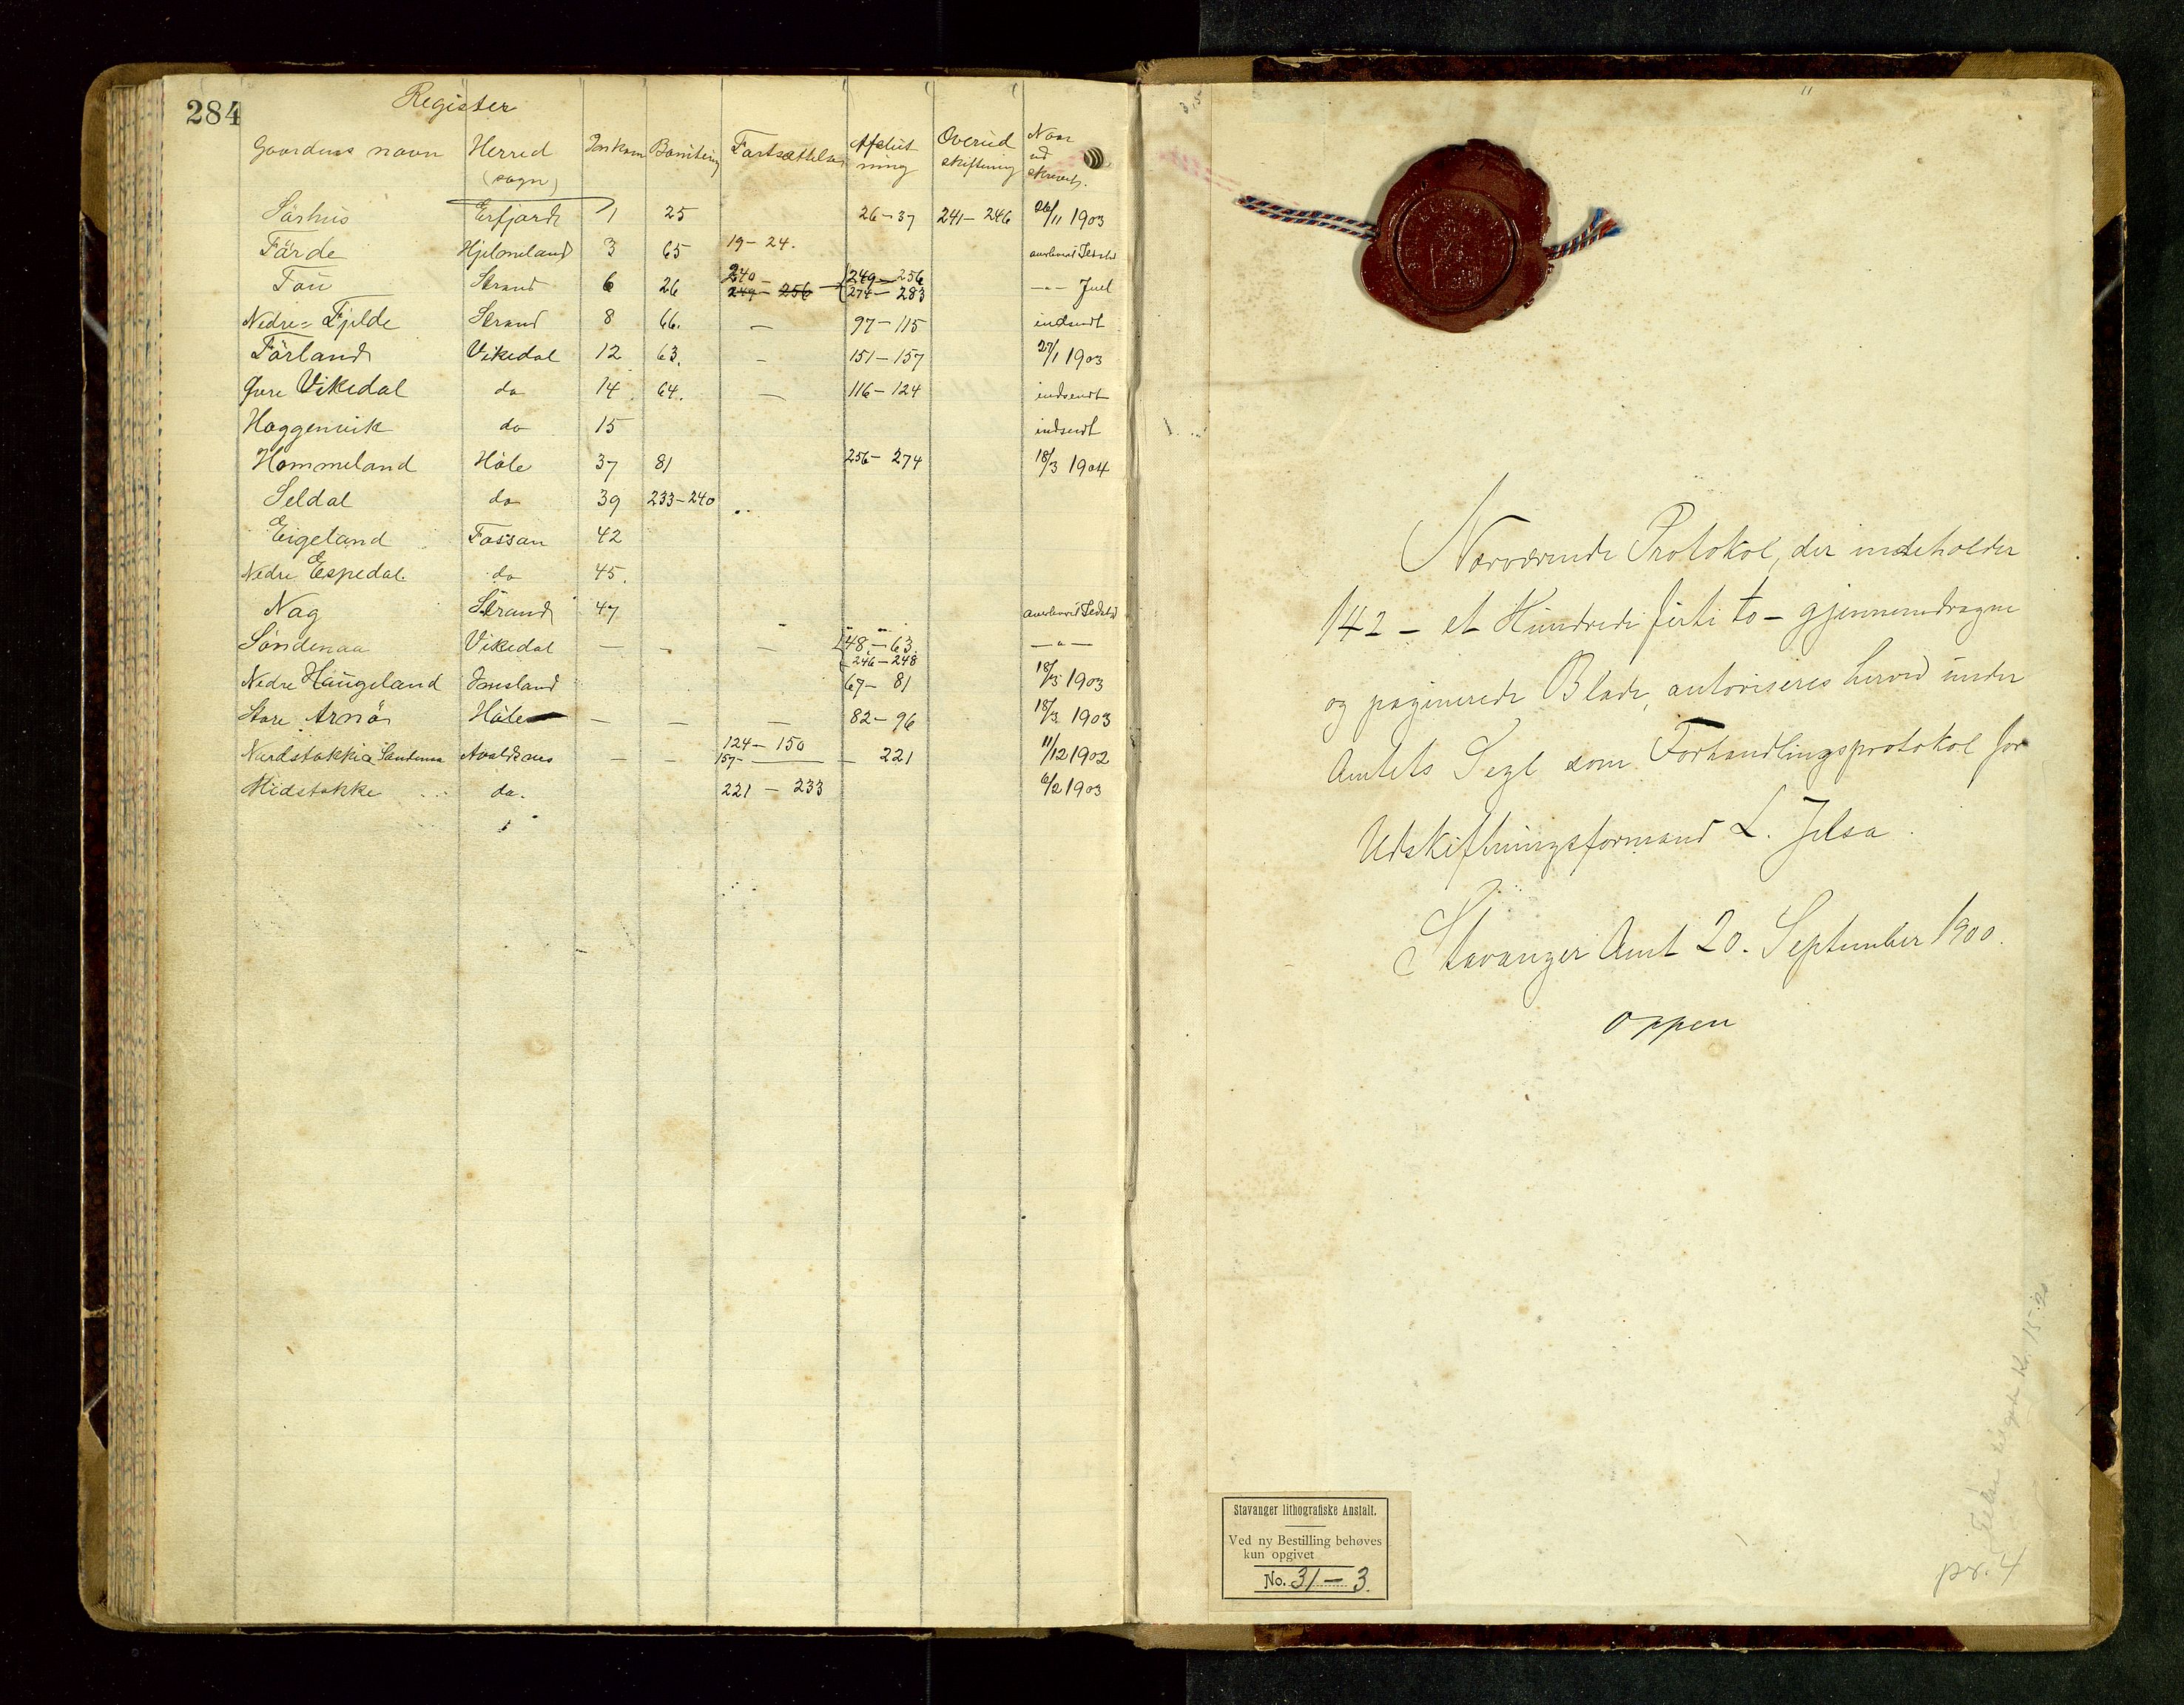 284
Register
Gaardens navn Herred (sogn) Inkom Bonitering Fortsættelse Afslutning Overudskiftning Naar udskrevet.
Sørhus Erfjord 1 25 26-37 241-246 26/11 1903
Førde Hjelmeland 3 65 19-24.
Tau Strand 6 26 240- 249-256 249-256 274-283 -"- Juel
Nedre= Fjelde Strand 8 66. - 97-115 indsendt
Førland Vikedal 12 63. - 151-157 27/1 1903
Øvre Vikedal do 14 64. - 116-124 indsendt
Haggenvik do 15 indsendt
Hommeland Høle 37 81 256-274 18/3 1904
Seldal do 39 233-240
Eigeland Fossan 42
Nedre Espedal. do 45.
Nag Strand 47
Søndenaa Vikedal - - - 48-63 246-248 -"-
Nedre Haugeland 67-81 18/3 1903
Store Arnø Høle - - - 82-96 18/3 1903
Nordstokke & Søndenaa Avaldsnes - - 124-150 157- - 221 11/12 1902
Midstokke do. 221-233 6/2 1903
Nærværende Protokol, der indeholder
142 - et Hundrede firti to - gjennemdragne
og paginerede Blade, autoriseres herved under
Amtets Segl som Forhandlingsprotokol for
Udskiftningsformand L. Jelsa.
Stavanger Amt 20. September 1900.
Oppen
Stavanger lithografiske Anstalt.
Ved ny Bestilling behøves
kun opgivet
No. 31-3.
pr. 4